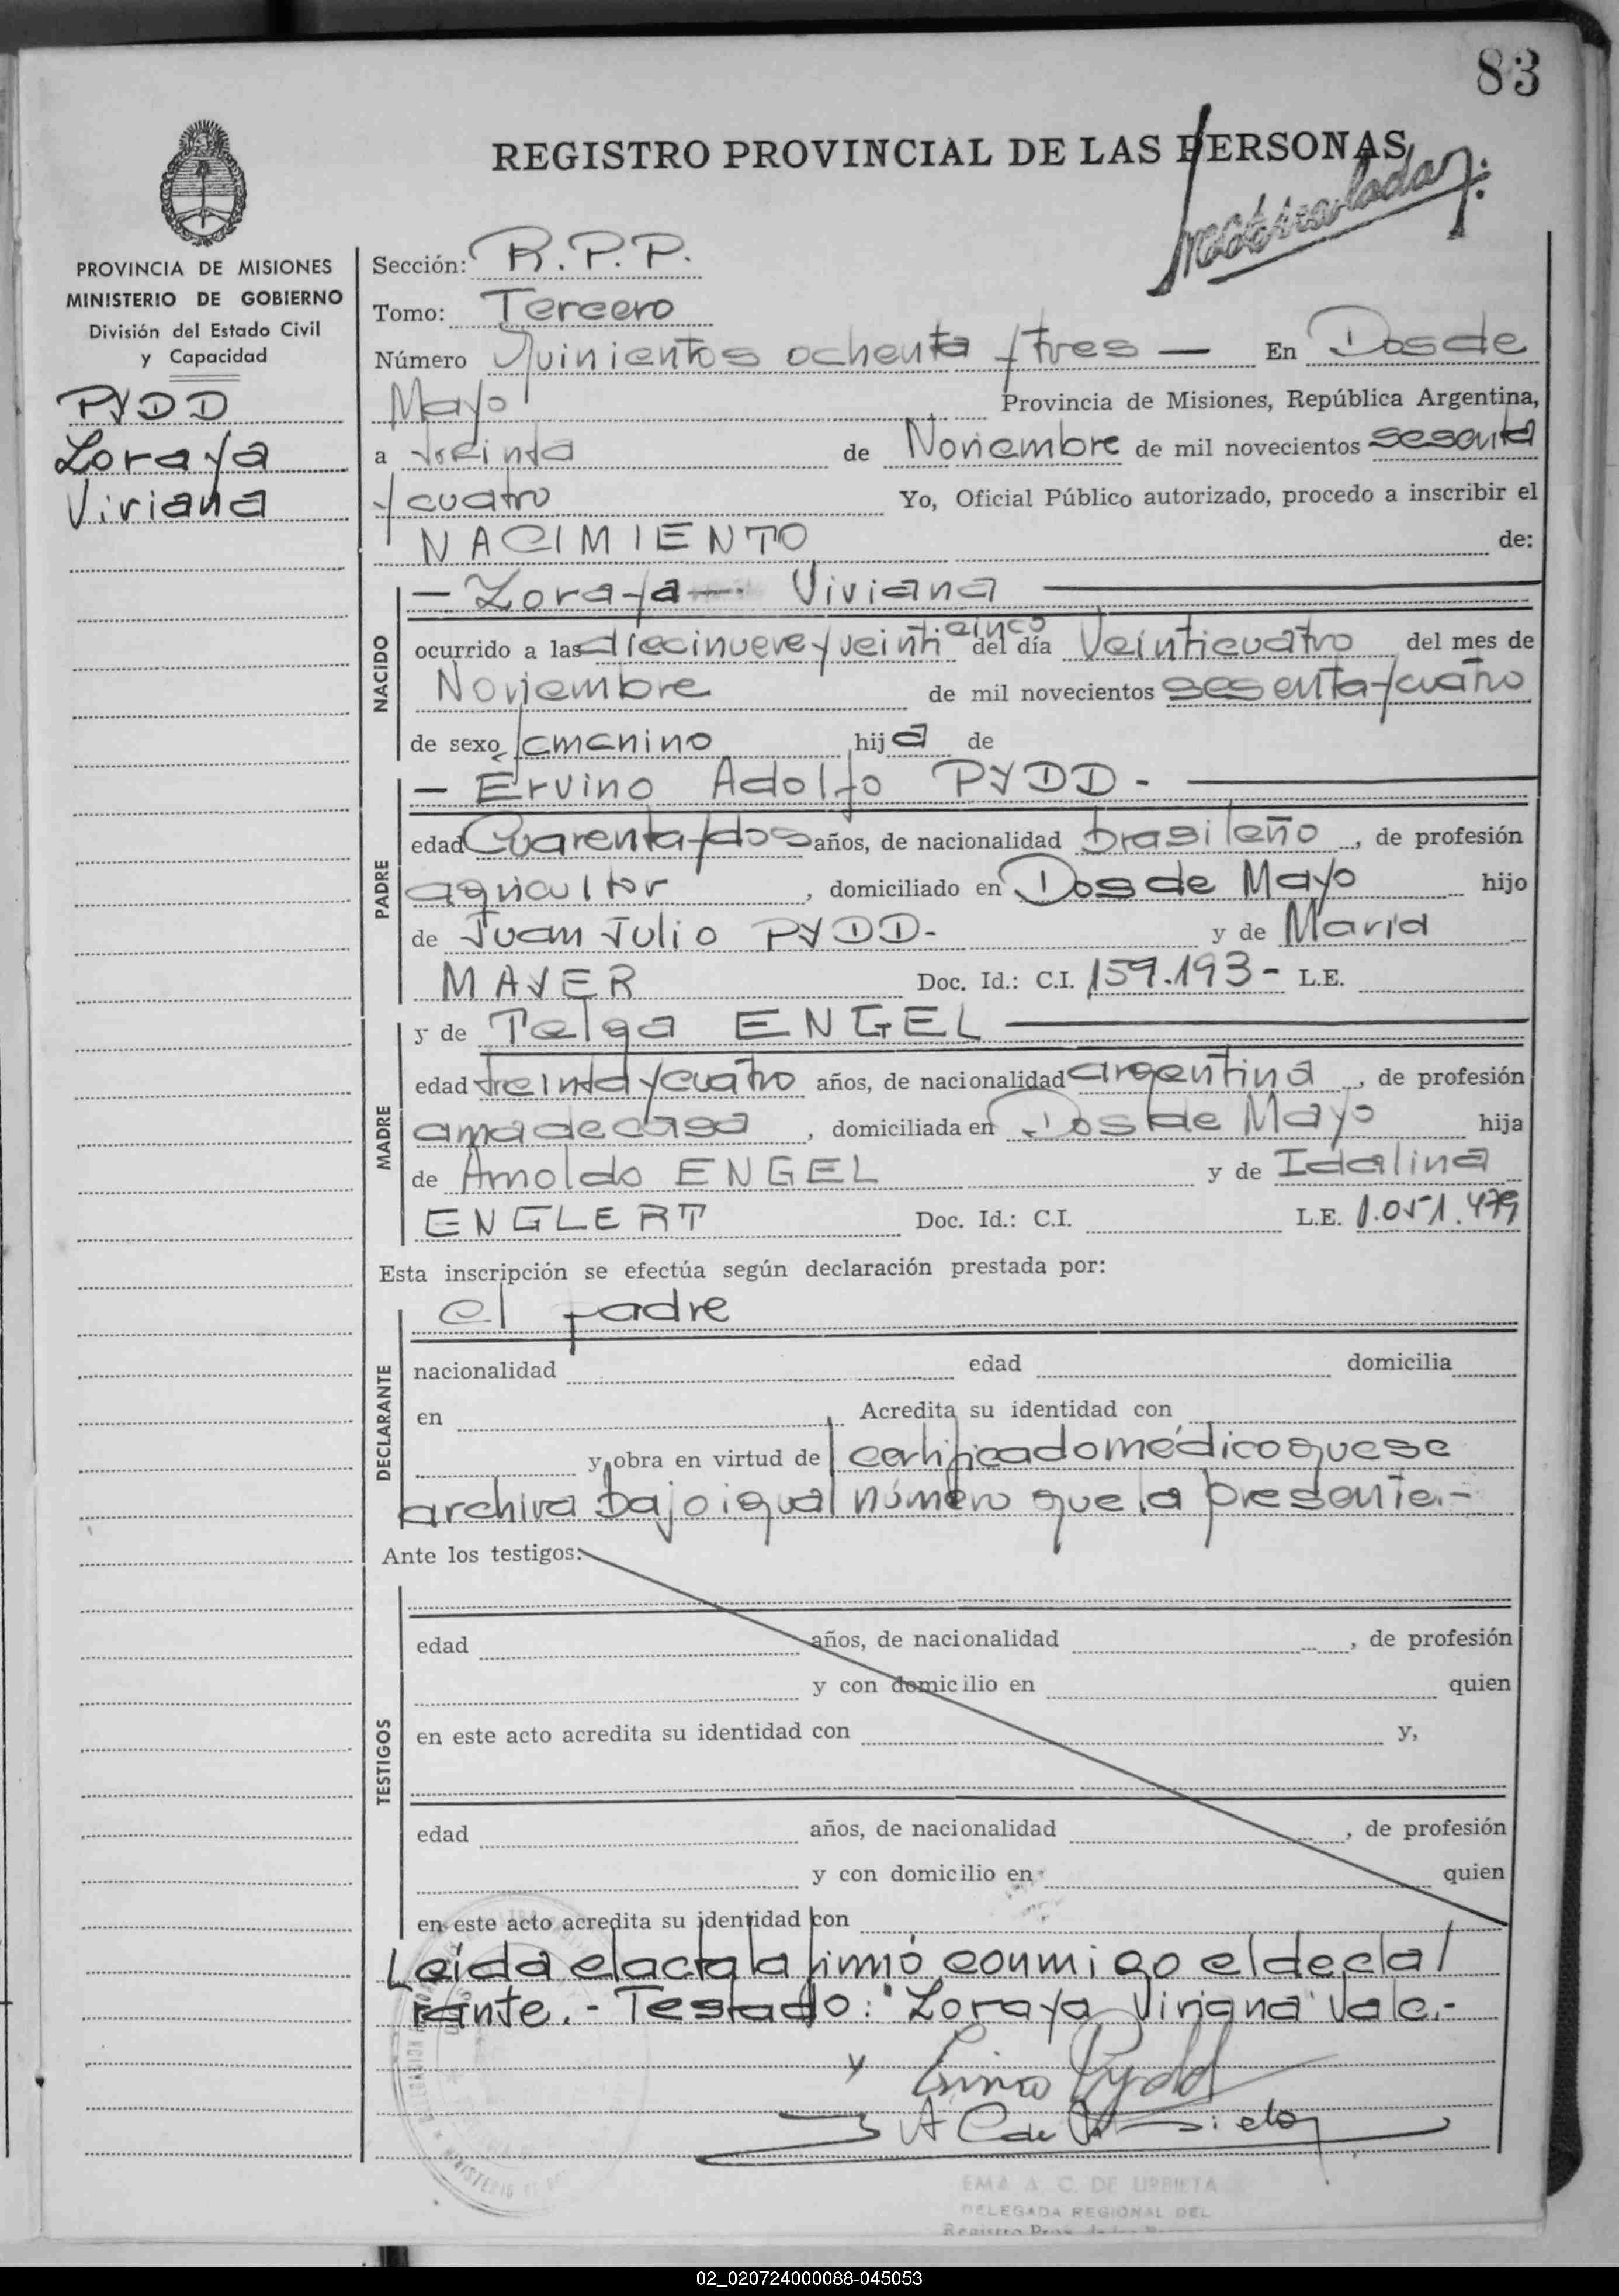 83
REGISTRO PROVINCIAL DE LAS PERSONAS
PROVINCIA DE MISIONES
MINISTERIO DE GOBIERNO
División del Estado Civil
y Capacidad
PYDD
Zoraya
Viviana
Sección: R.P.P.
Tomo: Tercero
Número Quinientos ochenta y tres — En Dos de
Mayo Provincia de Misiones, República Argentina,
a treinta de Noviembre de mil novecientos sesenta
y cuatro Yo, Oficial Público autorizado, procedo a inscribir el
NACIMIENTO de:
NACIDO
— Zoraya — Viviana
ocurrido a las diecinueve y veinticinco del día Veinticuatro del mes de
Noviembre de mil novecientos sesenta y cuatro
de sexo femenino hija de
PADRE
— Ervino Adolfo PYDD -
edad Cuarenta y dos años, de nacionalidad brasileño, de profesión
agricultor, domiciliado en Dos de Mayo hijo
de Juan Julio PYDD- y de María
MAYER Doc. Id.: C.I. 159.193- L.E.
MADRE
y de Telga ENGEL
edad treinta y cuatro años, de nacionalidad argentina, de profesión
ama de casa, domiciliada en Dos de Mayo hija
de Arnoldo ENGEL y de Idalina
ENGLERT Doc. Id.: C.I. L.E. 1.051.479
Esta inscripción se efectúa según declaración prestada por:
DECLARANTE
el padre
nacionalidad edad domicilia
en Acredita su identidad con
y obra en virtud de certificado médico que se
archiva bajo igual número que la presente.-
Ante los testigos:
TESTIGOS
edad años, de nacionalidad , de profesión
y con domicilio en quien
en este acto acredita su identidad con y,
edad años, de nacionalidad , de profesión
y con domicilio en quien
en este acto acredita su identidad con
Leída el acta la firmó conmigo el decla/
rante.- Testado: "Zoraya Viviana" Vale.-
EMA A. C. DE URBIETA
DELEGADA REGIONAL DEL
02_020724000088-045053